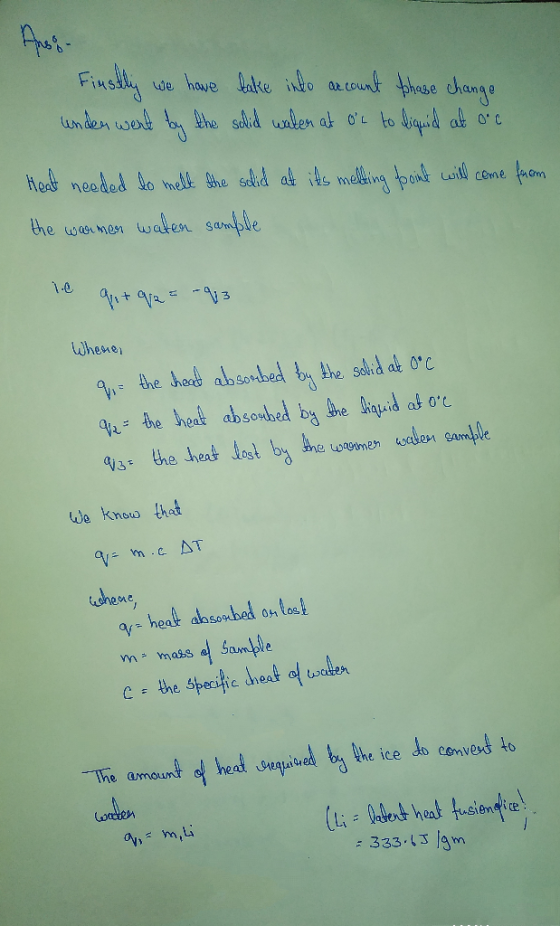 Ans:-
Firstly we have take into account phase change
underwent by the solid water at 0°C to liquid at 0°C
Heat needed to melt the solid at its melting point will come from
the warmer water sample
i.e q1 + q2 = -q3
Where,
q1 = the heat absorbed by the solid at 0°C
q2 = the heat absorbed by the liquid at 0°C
q3 = the heat lost by the warmer water sample
We know that
q = m.c ΔT
where,
q = heat absorbed or lost
m = mass of sample
c = the specific heat of water
The amount of heat required by the ice to convert to
water
(Li = latent heat fusion of ice)
q1 = m1Li
= 333.6J/gm